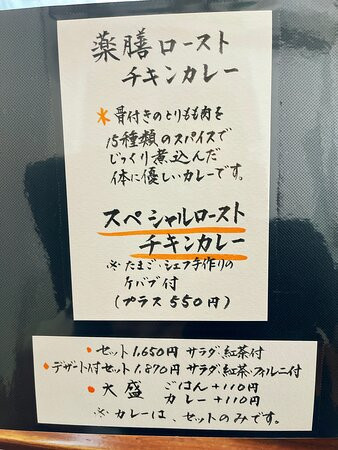 薬膳ロースト
チキンカレー
*骨付きのとりもも肉を
15種類のスパイスで
じっくり煮込んだ
体に優しいカレーです。
スペシャルロースト
チキンカレー
※たまご・シェフ手作りの
ケバブ付
(プラス550円)
•セット1.650円 サラダ、紅茶付
•デザート付セット1.870円 サラダ、紅茶・フィルニ付
•大盛 ごはん+110円
カレー+110円
※カレーは、セットのみです。